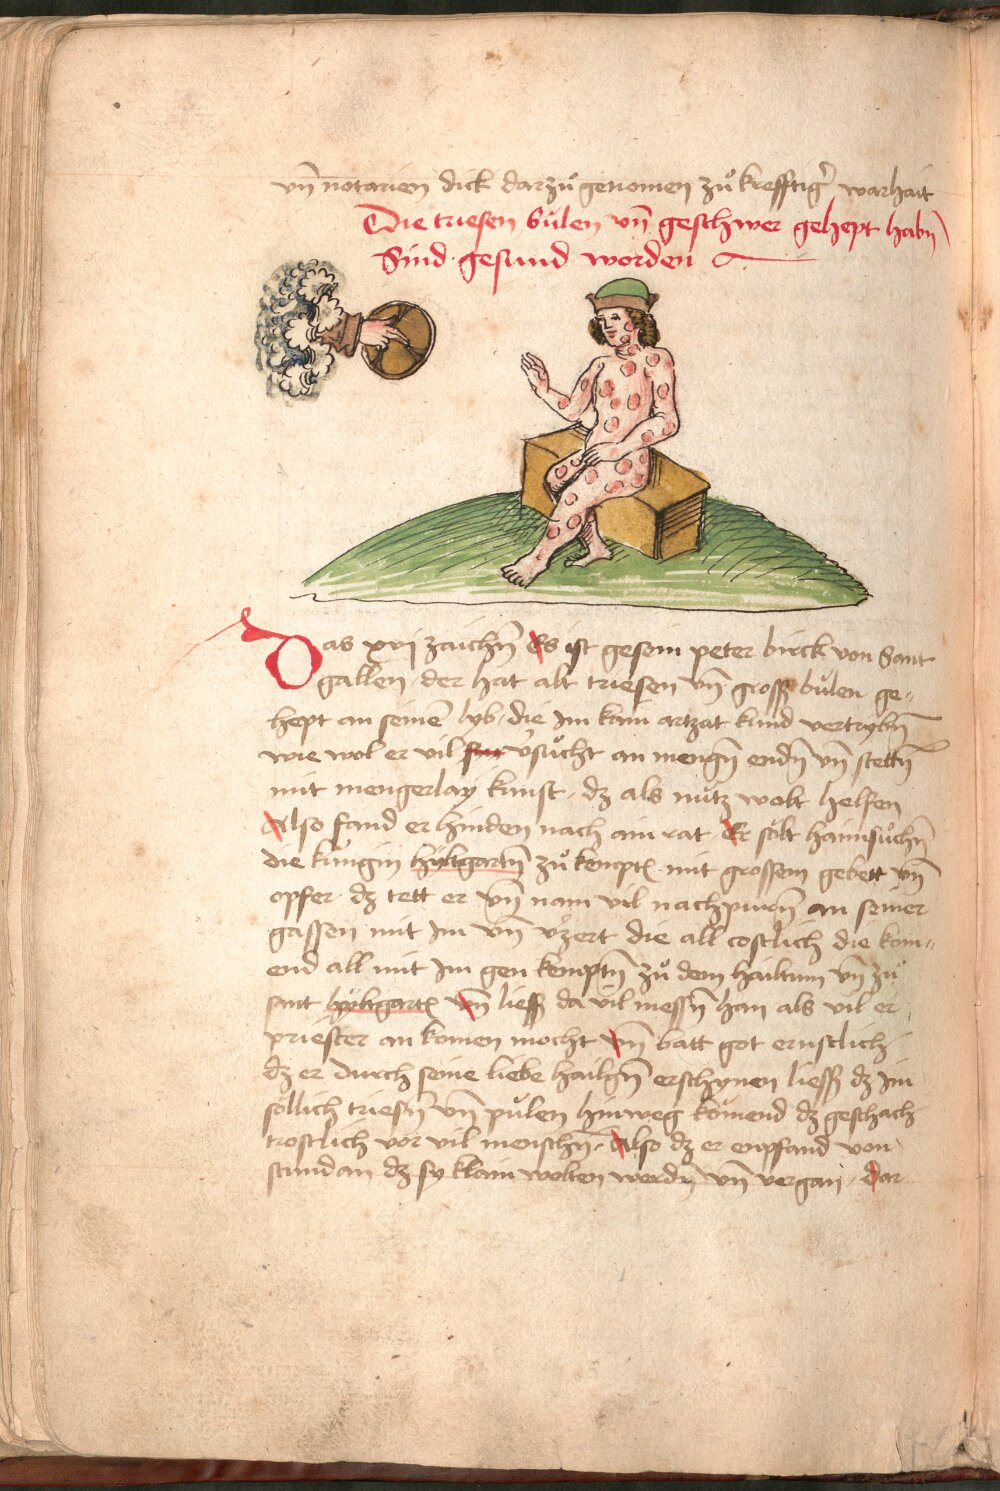 vn̄ notarien dick darzů genomen zů krefftigr̄ warhait
Die triesen bůlen vn̄ geschwer gehept habn̄
Sind gesund worden
Das xvj zaichn̄ Es ist gesein peter birck von Sant
gallen der hat alt triesen vn̄ groß bůlen ge„
hept an seinē lyb, die Im kain artzat kund vertrybn̄
wie wol er vil v̓sůcht an mengn̄ endn̄ vn̄ stettn̄
mit mengerlay kunst, dz als nůtz wolt helfen
Also fand er hinden nach ain rat Er sölt haimsůchn̄
die kungin hyltgartn̄ zů kempt mit grossem gebett vn̄
opfer dz tett er vn̄ nam vil nachpurn̄ an seiner
gassen mit Im vn̄ v̓zert die all costlich die kom„
end all mit Im gen kemptn̄ zů dem hailtum vn̄ zů
sant hyltgart vn̄ ließ da vil messn̄ han als vil er
priester an komen mocht vn̄ batt got ernstlich
dz er durch seine liebe hailgn̄ erschynen ließ dz Im
söllich triesn̄ vn̄ půlen hinweg kömend dz geschach
trostlich vor vil menschn̄. Also dz er enpfand von
stund an dz sy klain wolten werdn̄ vn̄ vergan, dar